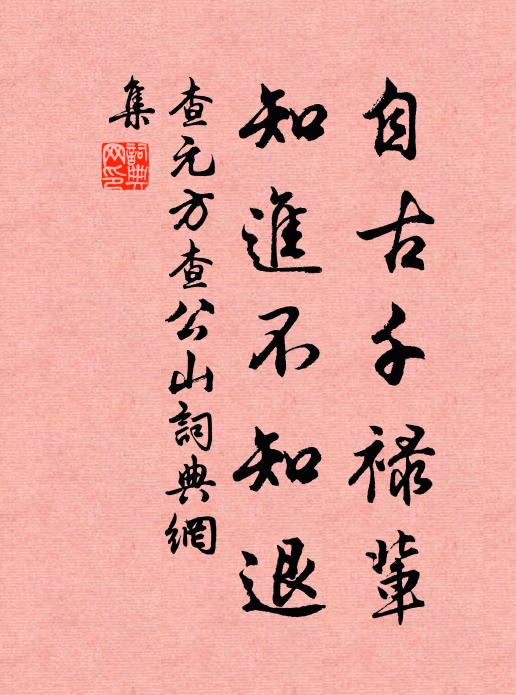 自古千禄輩
知進不知退
查元方查公山詞典網
集
詞典網印